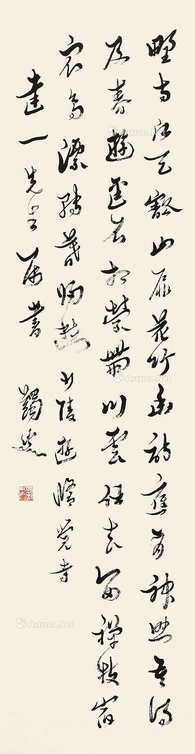 野寺江天豁山扉花竹幽詩應有神助吾得
及春遊徑石相縈帶川雲自去留禪枝宿
衆鳥漂轉暮歸愁少陵遊修覺寺
一先生屬書 蠲叟
Artron.Net